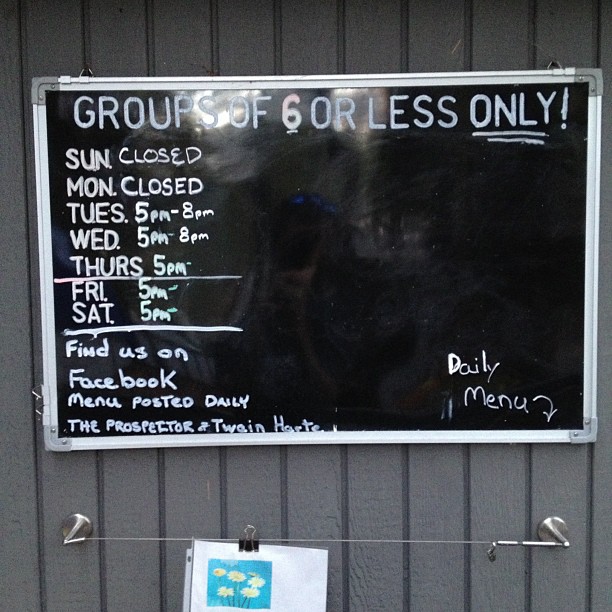 GROUPS OF 6 OR LESS ONLY!
SUN. CLOSED
MON. CLOSED
TUES. 5pm-8pm
WED. 5pm-8pm
THURS 5pm-
FRI. 5pm-
SAT. 5pm-
Find us on
Facebook
Menu POSTED DAILY
THE PROSPECTOR & Twain Harte
Daily
Menu